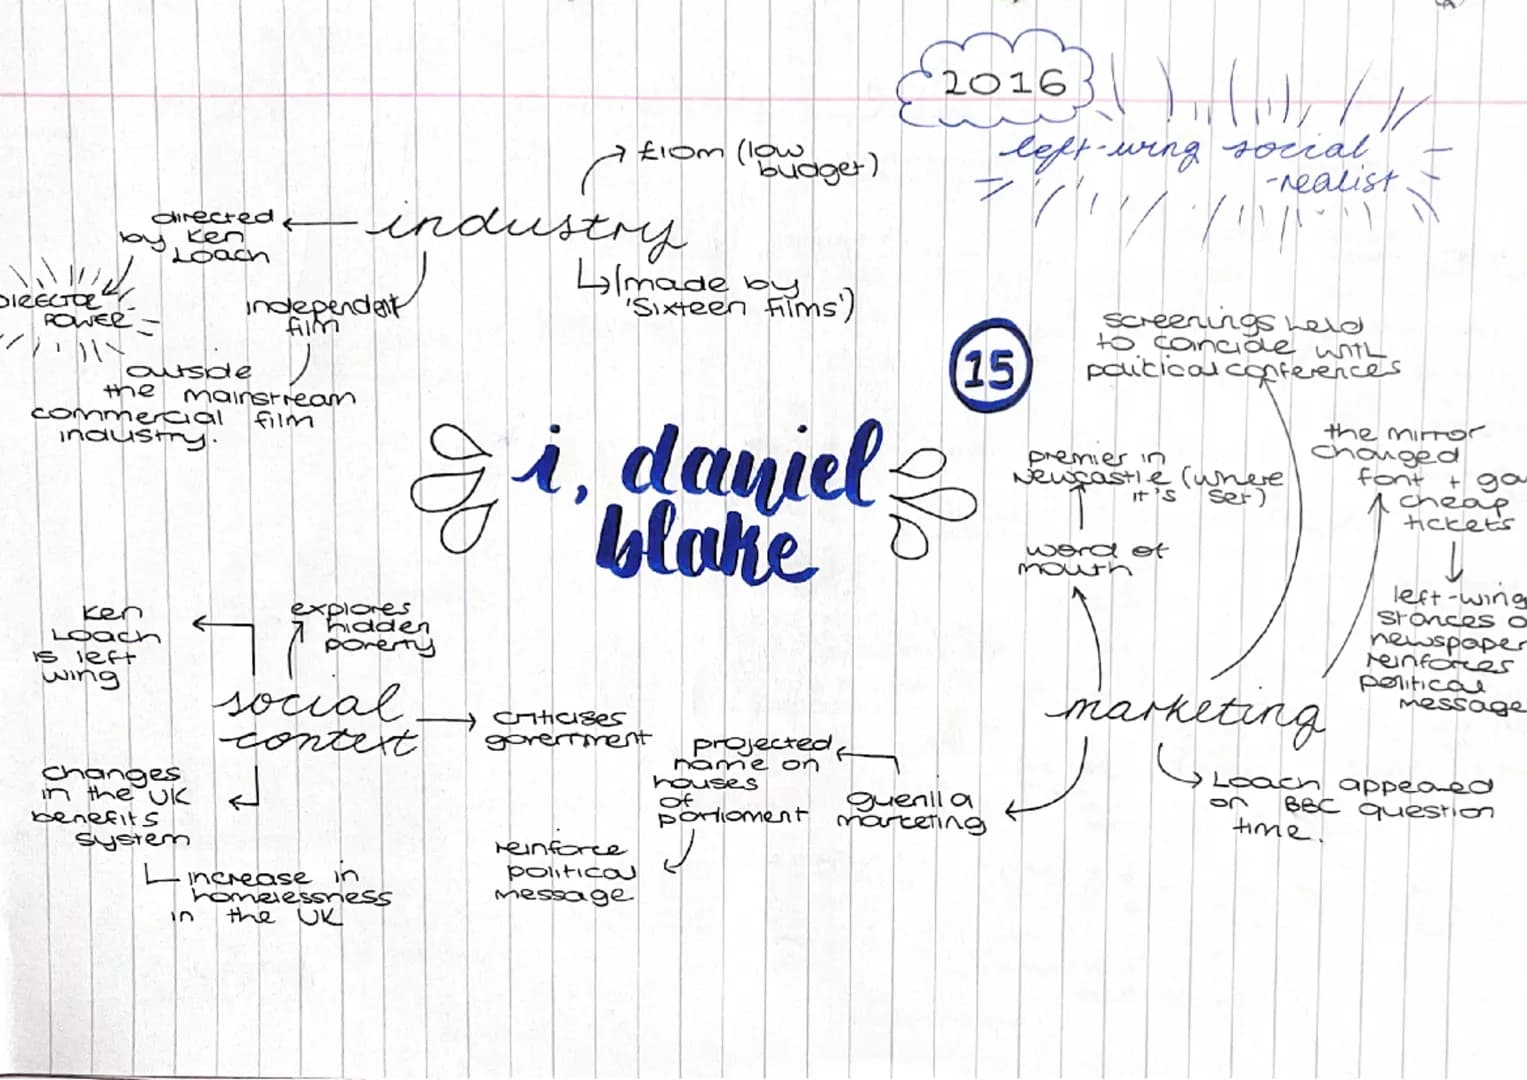 2016
left-wing social
-realist
£10m (low
budget)
industry
directed
by Ken
Loach
DIRECTOR
POWER
(made by
'Sixteen Films')
independent
film
outside
the mainstream
commercial film
industry.
15
i, daniel
blake
screenings held
to coincide with
political conferences
the mirror
changed
font + ga
cheap
tickets
premier in
Newcastle (where
it's set)
word of
mouth
left-wing
stances o
newspaper
reinforces
political
message
marketing
Ken
Loach
is left
wing
explores
hidden
poverty
social
context
criticises
government
changes
in the UK
benefits
system
increase in
homelessness
in the UK
projected
name on
houses
of
parliament
guerilla
marketing
reinforce
political
message
Loach appeared
on BBC question
time.